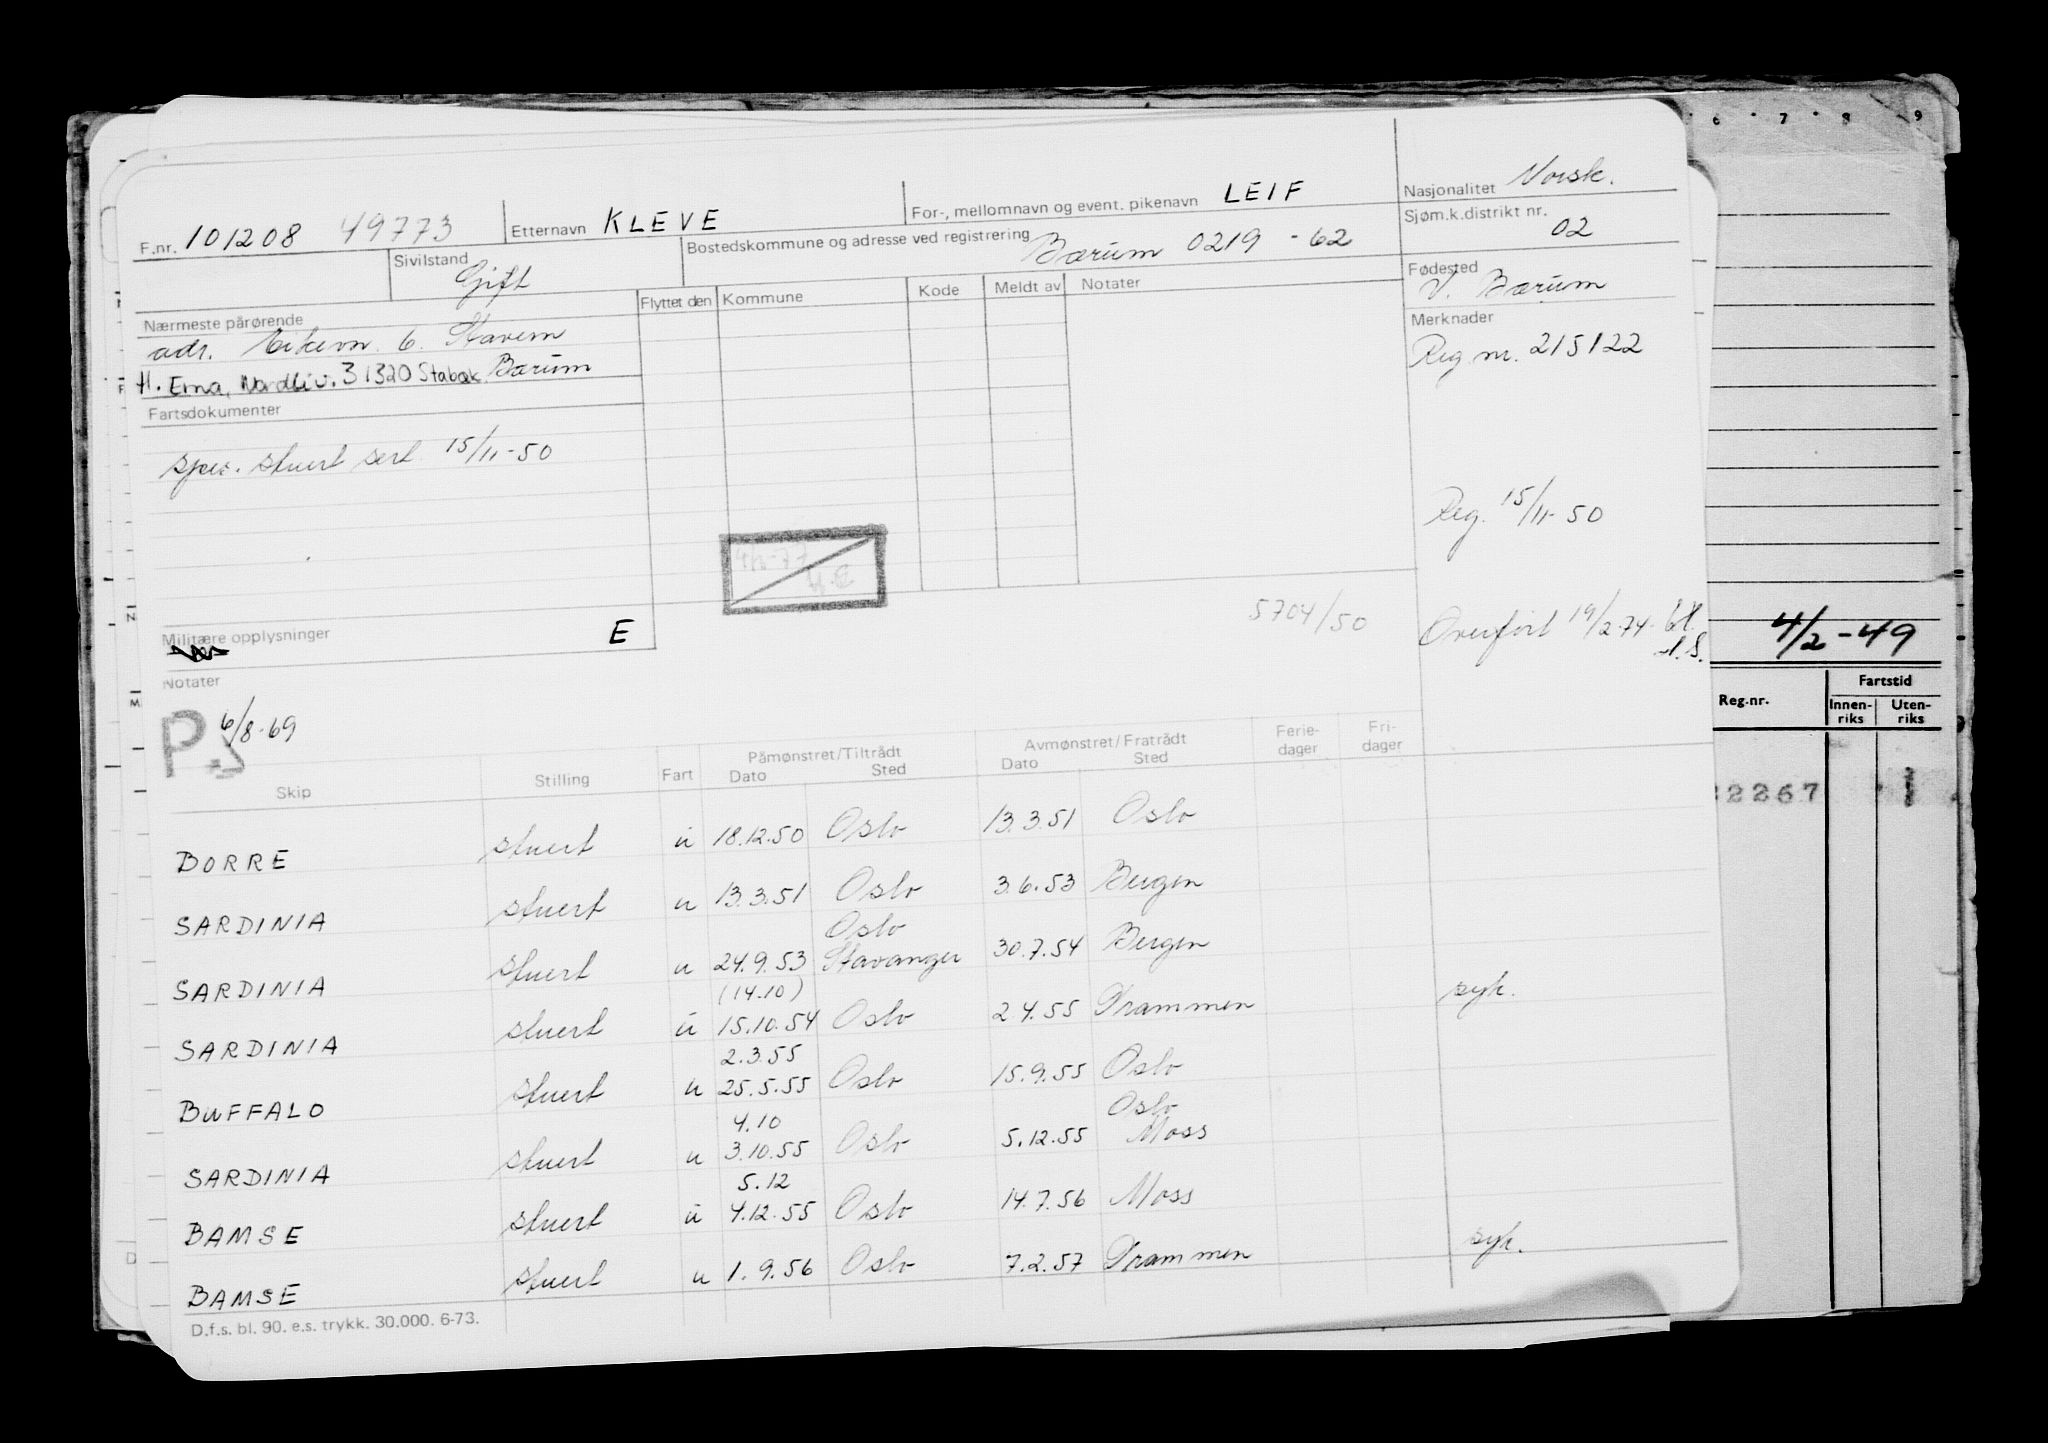 F.nr. 101208 49773 Etternavn KLEVE For-, mellomnavn og event. pikenavn LEIF Nasjonalitet Norsk.
Sivilstand Gift Bostedskommune og adresse ved registrering Bærum 0219 - 62 Sjøm.k.distrikt nr. 02
Nærmeste pårørende Flyttet den Kommune Kode Meldt av Notater Fødested V. Bærum
adr. 6. Stavern Merknader
H. Erna, Nordliv. 3 1320 Stabæk. Bærum Reg nr. 215122
Fartsdokumenter
spes. stuert sert. 15/11-50
Reg. 15/11-50
4/2-77
5704/50
Militære opplysninger E Overført 19/2.74.
Notater
P 6/8-69
Skip Stilling Fart Påmønstret/Tiltrådt Dato Sted Avmønstret/Fratrådt Dato Sted Ferie-dager Fri-dager
BORRE stuert u 18.12.50 Oslo 13.3.51 Oslo
SARDINIA stuert u 13.3.51 Oslo 3.6.53 Bergen
Oslo
SARDINIA stuert u 24.9.53 Stavanger 30.7.54 Bergen
(14.10)
SARDINIA stuert u 15.10.54 Oslo 2.4.55 Drammen syk.
2.3.55
BUFFALO stuert u 25.5.55 Oslo 15.9.55 Oslo
4.10 Oslo
SARDINIA stuert u 3.10.55 Oslo 5.12.55 Moss
5.12
BAMSE stuert u 4.12.55 Oslo 14.7.56 Moss
BAMSE stuert u 1.9.56 Oslo 7.2.57 Drammen syk.
D.f.s. bl. 90. e.s. trykk. 30.000. 6-73.
6 7 8 9
4/2-49
Reg.nr. Fartstid
Innen-riks Uten-riks
2267
N
M
D